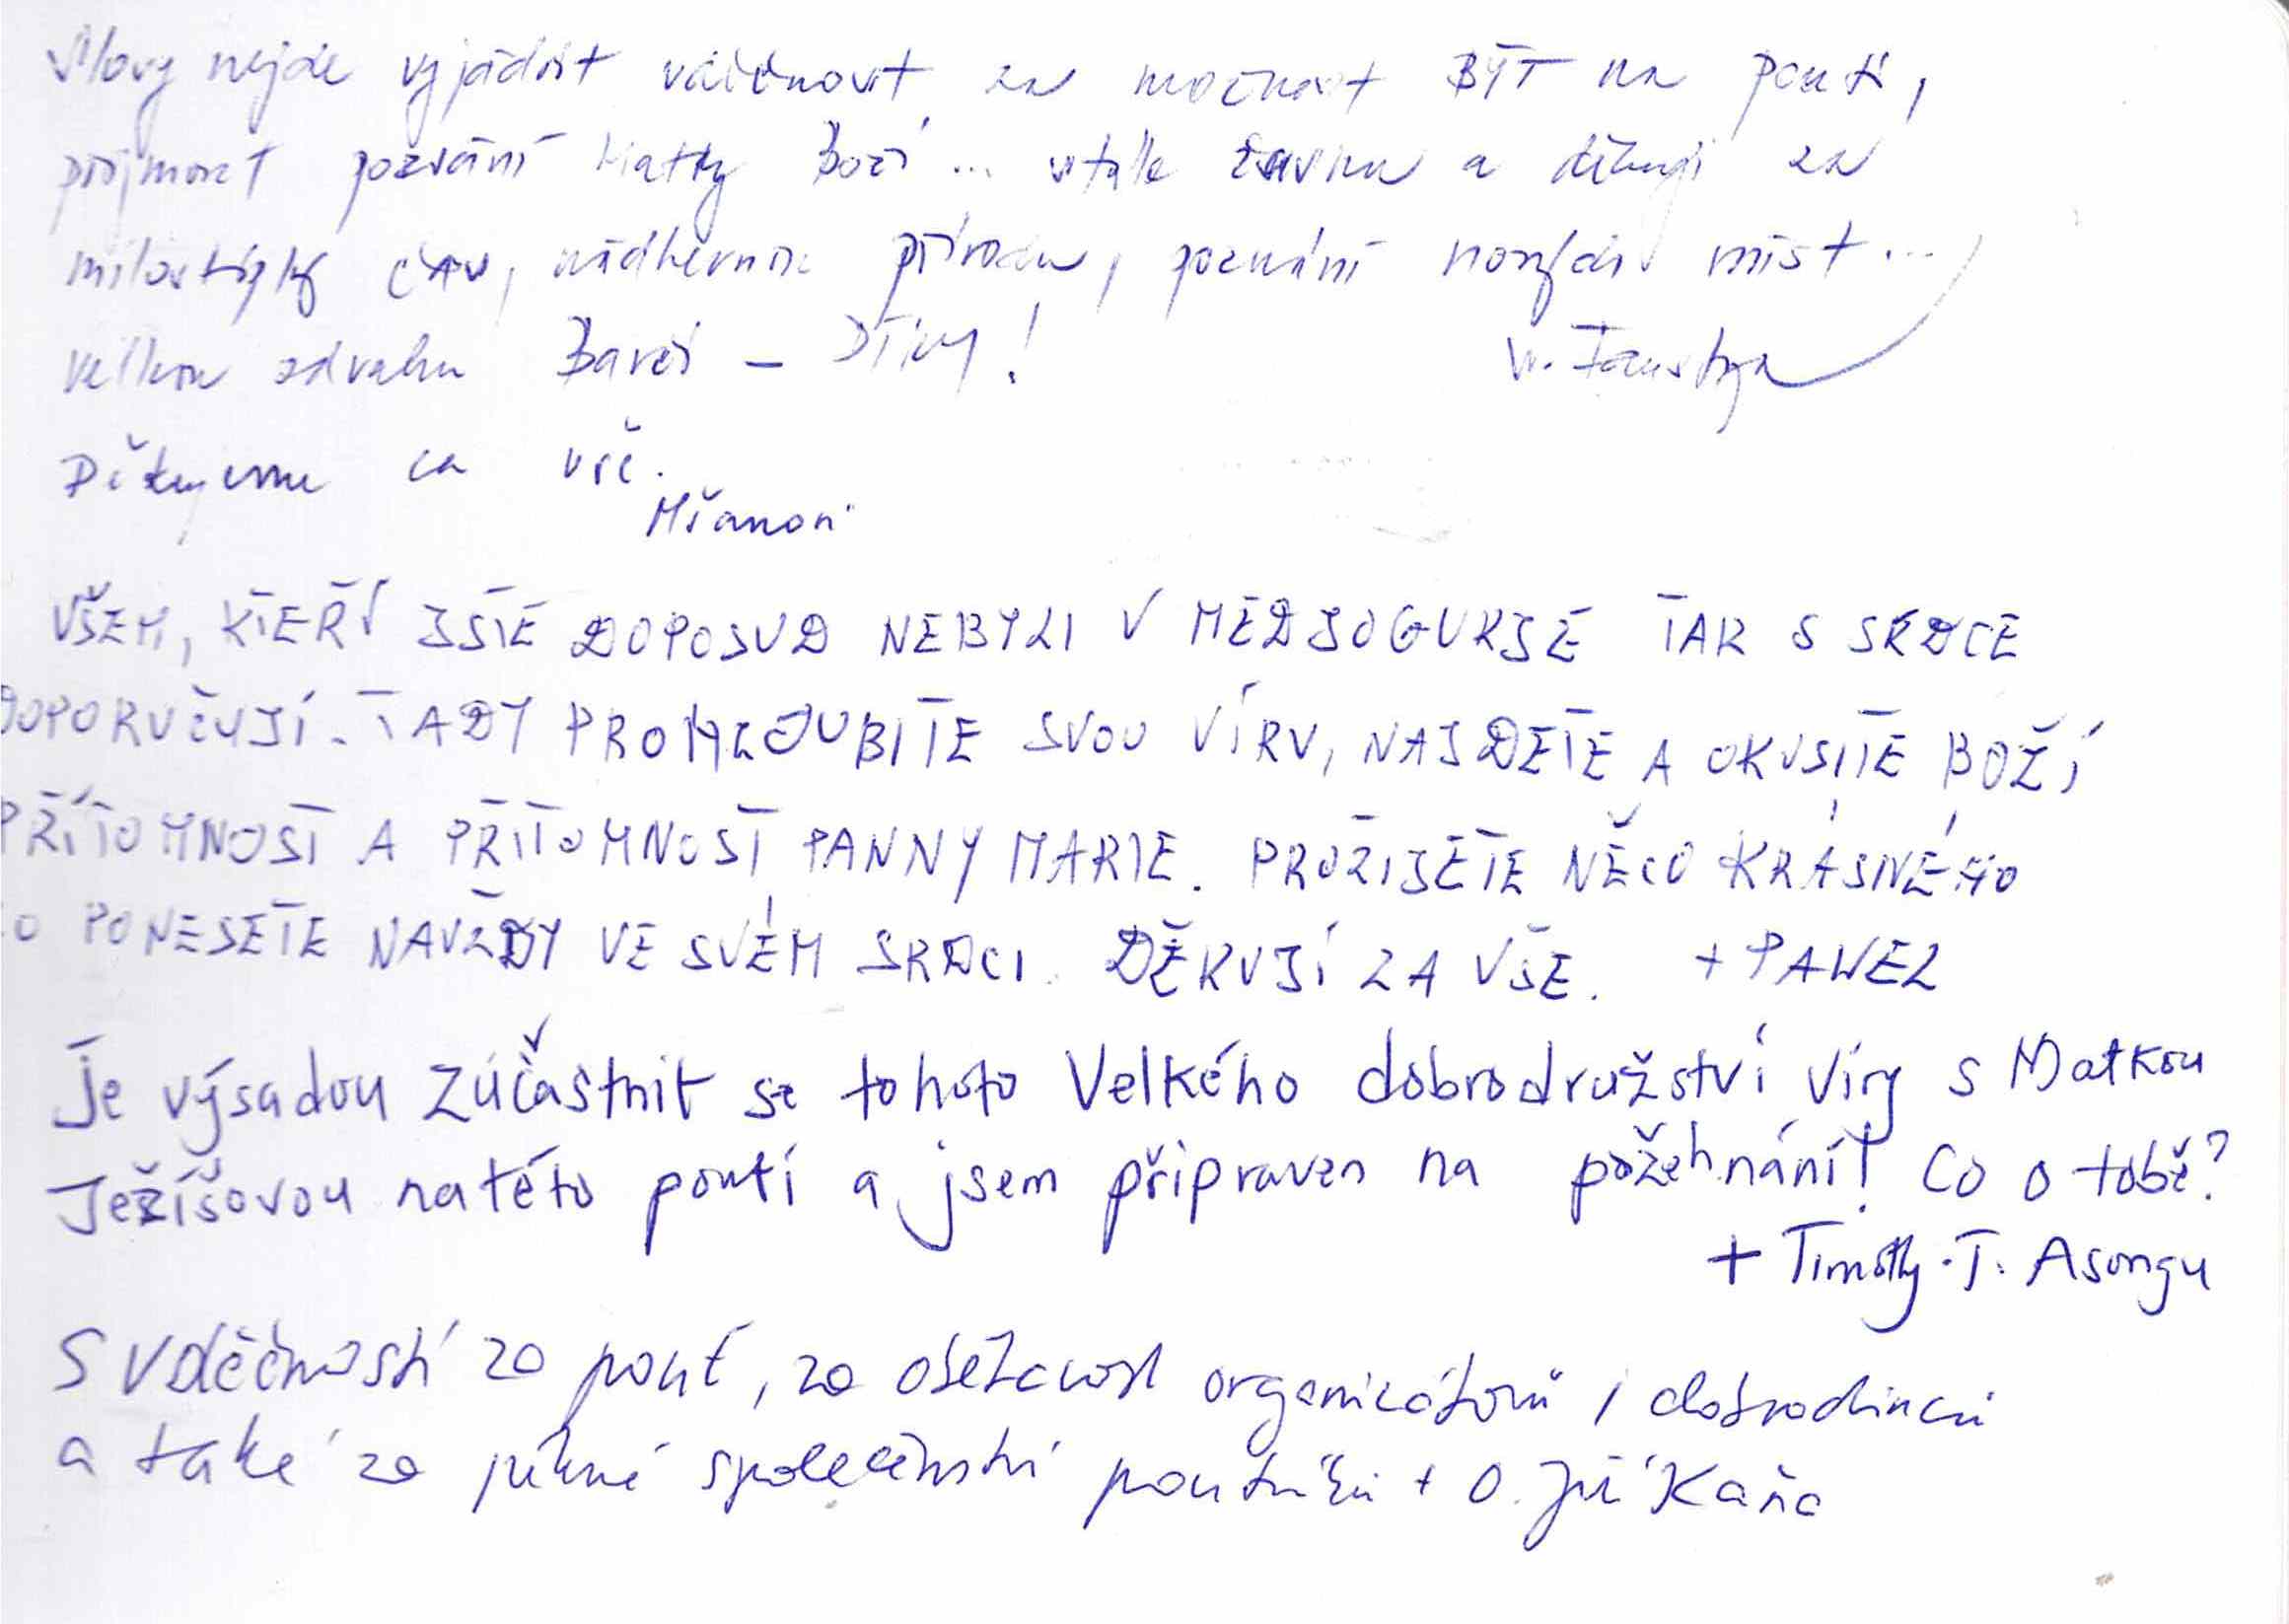 Slovy nejde vyjádřit vděčnost za možnost BÝT na pouti,
přijmout pozvání Matky Boží ... stále žasnu a děkuji za
milostiplný čas, nádhernou přírodu, poznání nových míst ...
velkou odvahu Barči - Díky!
Děkujeme za vše.
VŠEM, KTEŘÍ JSTE DOPOSUD NEBYLI V MEDJOGURJE TAK S SRDCE
DOPORUČUJI. TADY PROHLOUBITE SVOU VÍRU, NAJDETE A OKUSITE BOŽÍ
PŘÍTOMNOST A PŘÍTOMNOST PANNY MARIE. PROŽIJETE NĚCO KRÁSNÉHO
CO PONESETE NAVŽDY VE SVÉM SRDCI. DĚKUJI ZA VŠE. + PAWEL
Je výsadou zúčastnit se tohoto Velkého dobrodružství víry s Matkou
Ježíšovou na této poutí a jsem připraven na požehnání! Co o tobě?
+ Timothy T. Asongu
S vděčností za pouť, za oběžavost organizátorů i dobrodinců
a také za pěkné společenství poutníků + O. Jiří Kaňa